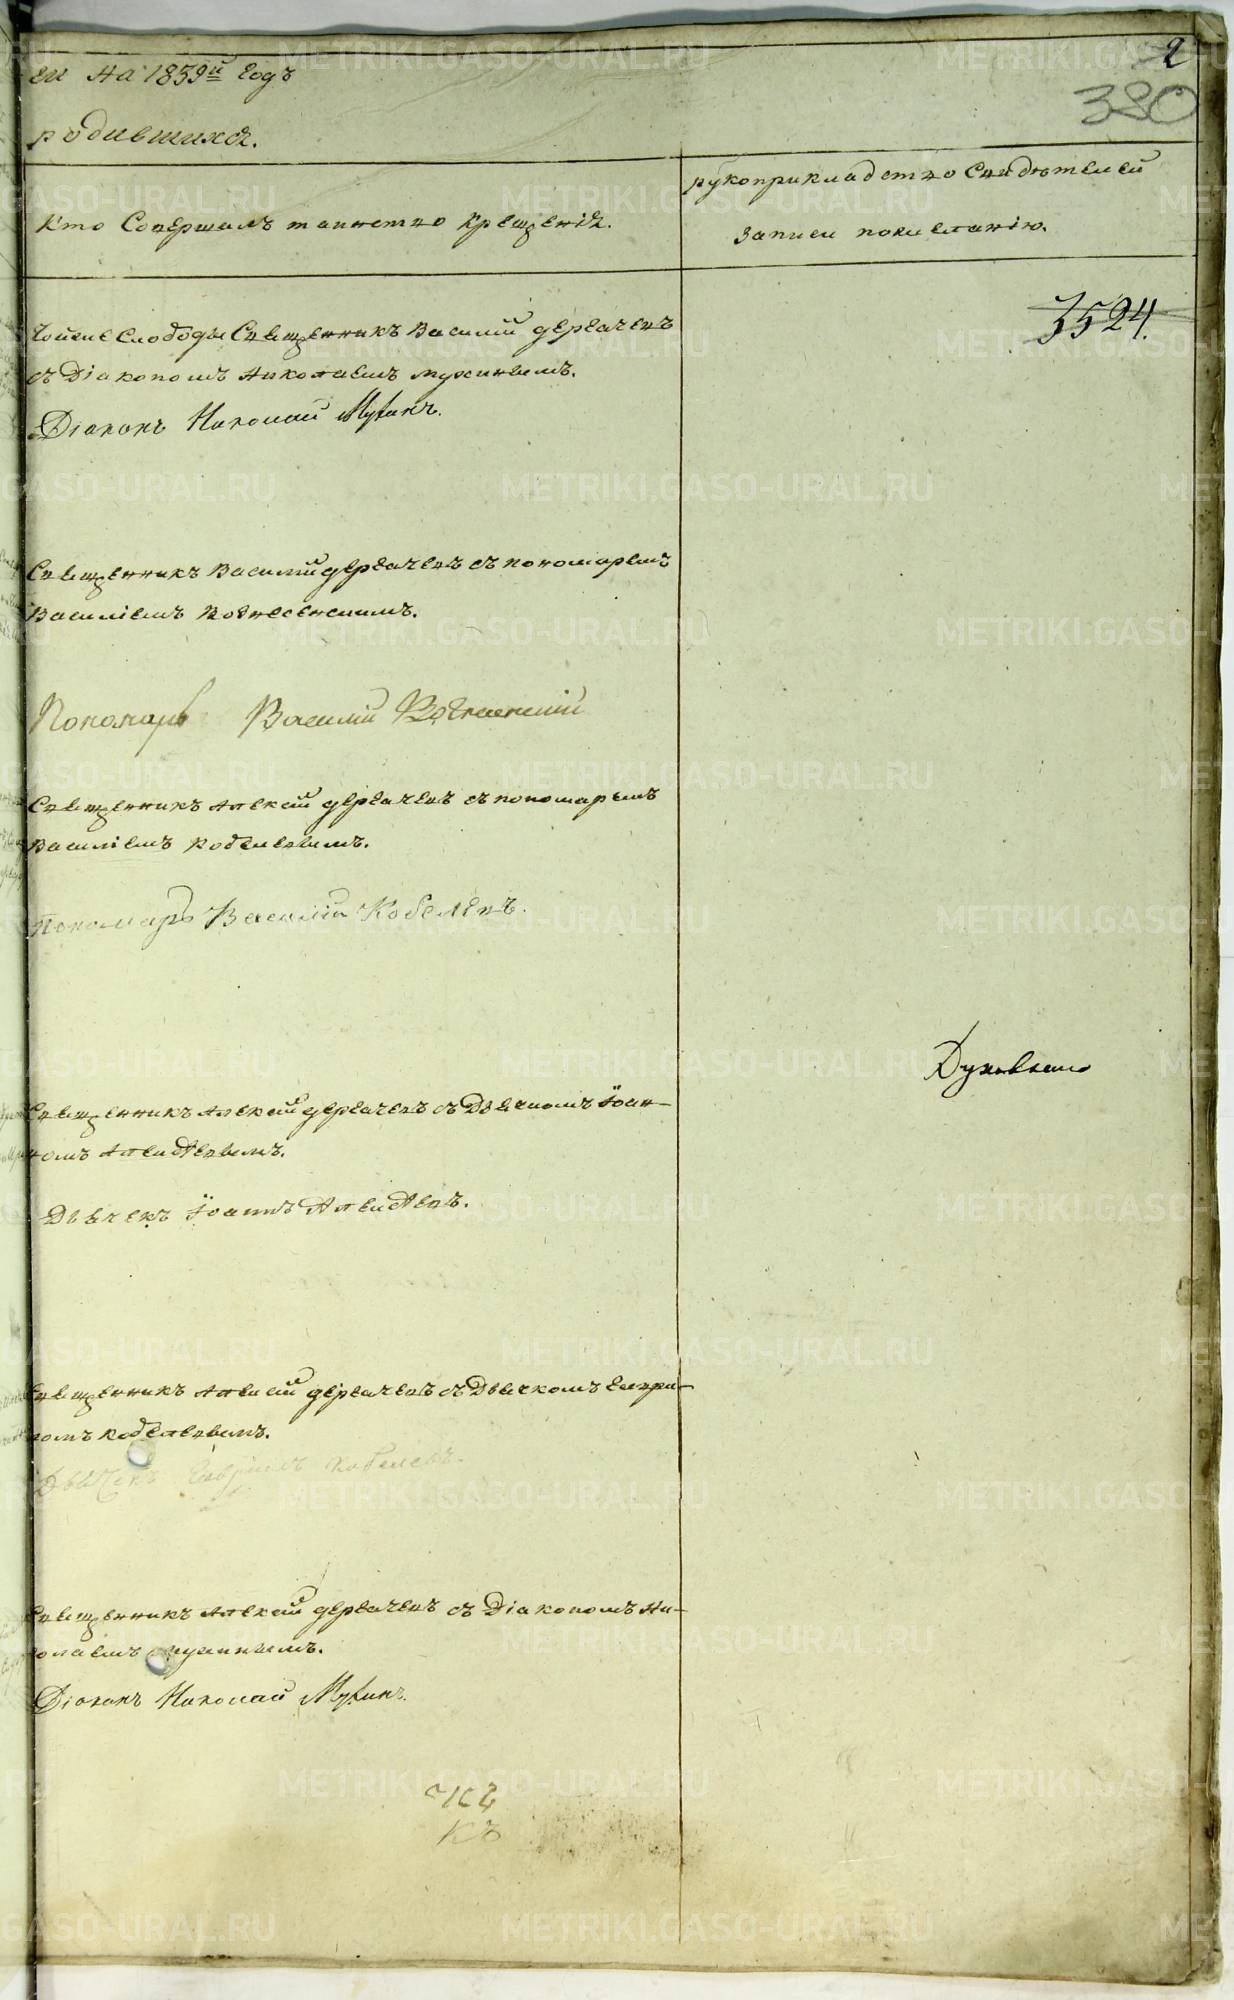 2
ги на 1839й годъ
380
родившихся.
Кто Совершалъ таинство Крещенія.
рукоприкладство Свидѣтелей
записи пожеланію.
3524.
Слободы Священникъ Василий дергачевъ
съ Діакономъ Николаемъ мухинымъ.
Діаконъ Николай Мухинъ.
Священникъ Василий дергачевъ съ пономаремъ
Василіемъ Вознесенскимъ.
Пономарь Василий Вознесенский
Священникъ Алексей дергачевъ съ пономаремъ
Василіемъ кобелевымъ.
Пономарь Василий Кобелевъ.
Духовнаго
Священникъ Алексей дергачевъ съ Дьячкомъ Іоан-
номъ
Дьячекъ Іоаннъ
Священникъ Алексей дергачевъ съ Дьячкомъ Гаври-
ломъ кобелевымъ.
Дьячекъ Гаврилъ Кобелевъ.
Священникъ Алексей дергачевъ съ Діакономъ Ни-
колаемъ мухинымъ.
Діаконъ Николай Мухинъ.
METRIKI.GASO-URAL.RU